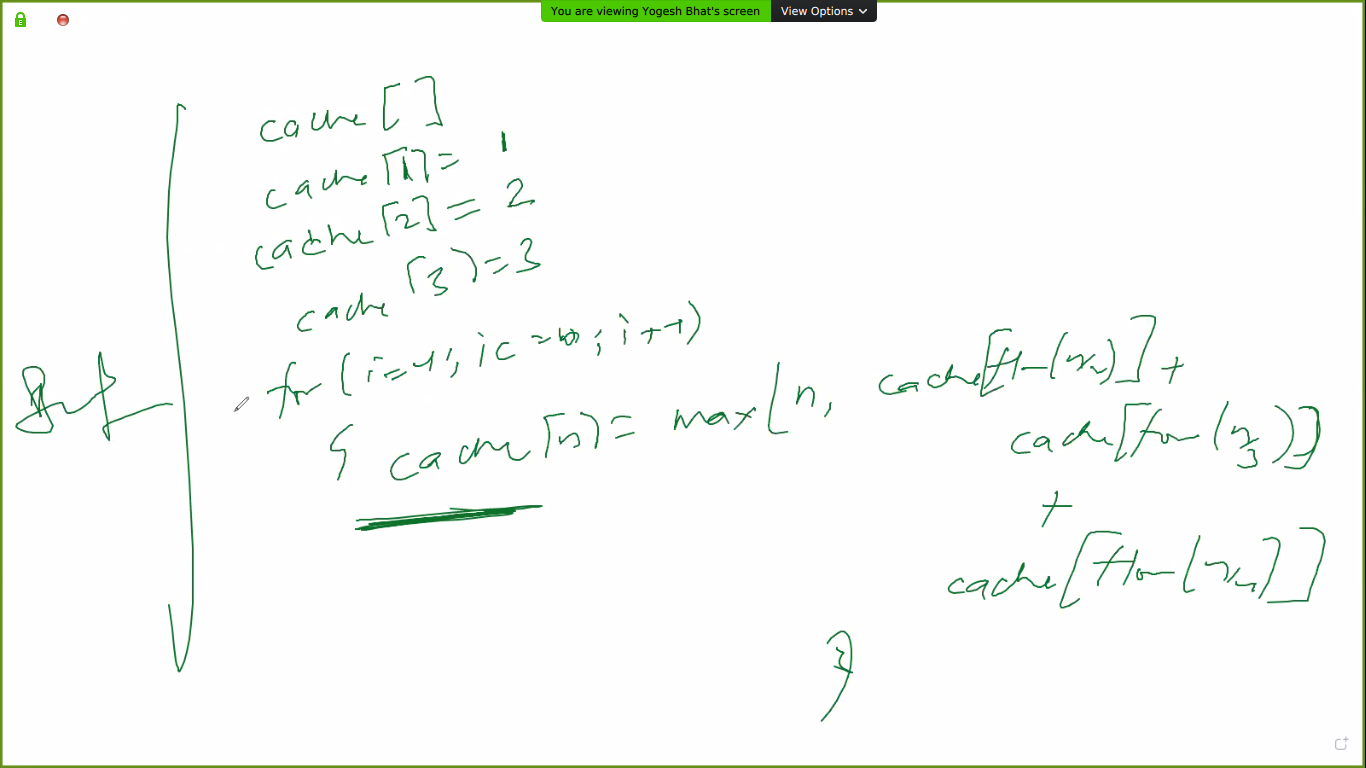 You are viewing Yogesh Bhat's screen View Options
cache[]
cache[1]= 1
cache[2]= 2
cache[3]=3
for (i=4; i<=n; i++)
{ cache[n]= max(n, cache[floor(n/2)]+
cache[floor(n/3)]
+
cache[floor(n/4)]
}